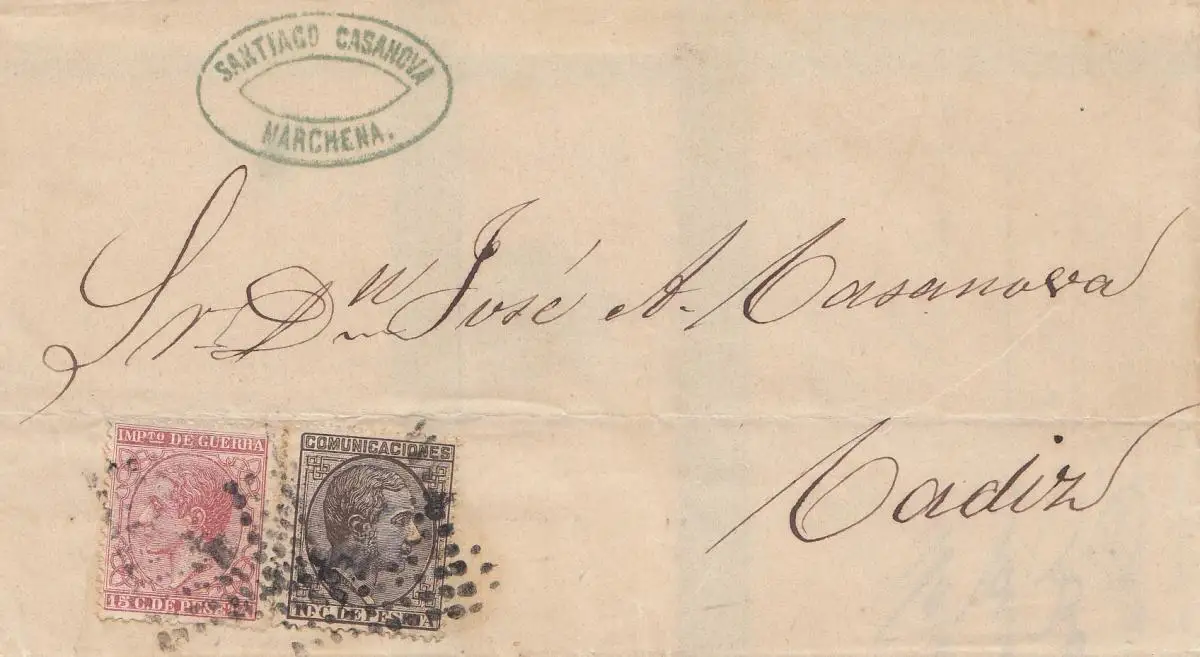 SANTIAGO CASANOVA
MARCHENA.
Sr. Dn José A. Casanova
Cadiz
IMPTO DE GUERRA
15 C. DE PESETA
COMUNICACIONES
10 C. DE PESETA